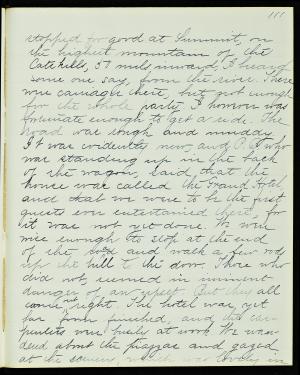 111
stopped for good at Summit, on
the highest mountain of the
Catskills, 57 miles inward, I heard
some one say, from the river. There
were carriages there, but not enough
for the whole party. I however was
fortunate enough to get a ride. The
road was rough and muddy.
It was evidently new, and P. who
was standing up in the back
of the wagon, said that the
house was called the Grand Hotel
and that we were to be the first
guests ever entertained there, for
it was not yet done. We were
nice enough to stop at the end
of the and walk a few rods
up the hill to the door. Those who
did not seemed in imminent
danger of an upset. But they all
came right. The hotel was yet
far from finished, and the car-
penters were busily at work. We wan-
dered about the piazzas and gazed
at the scenery, which was lovely in